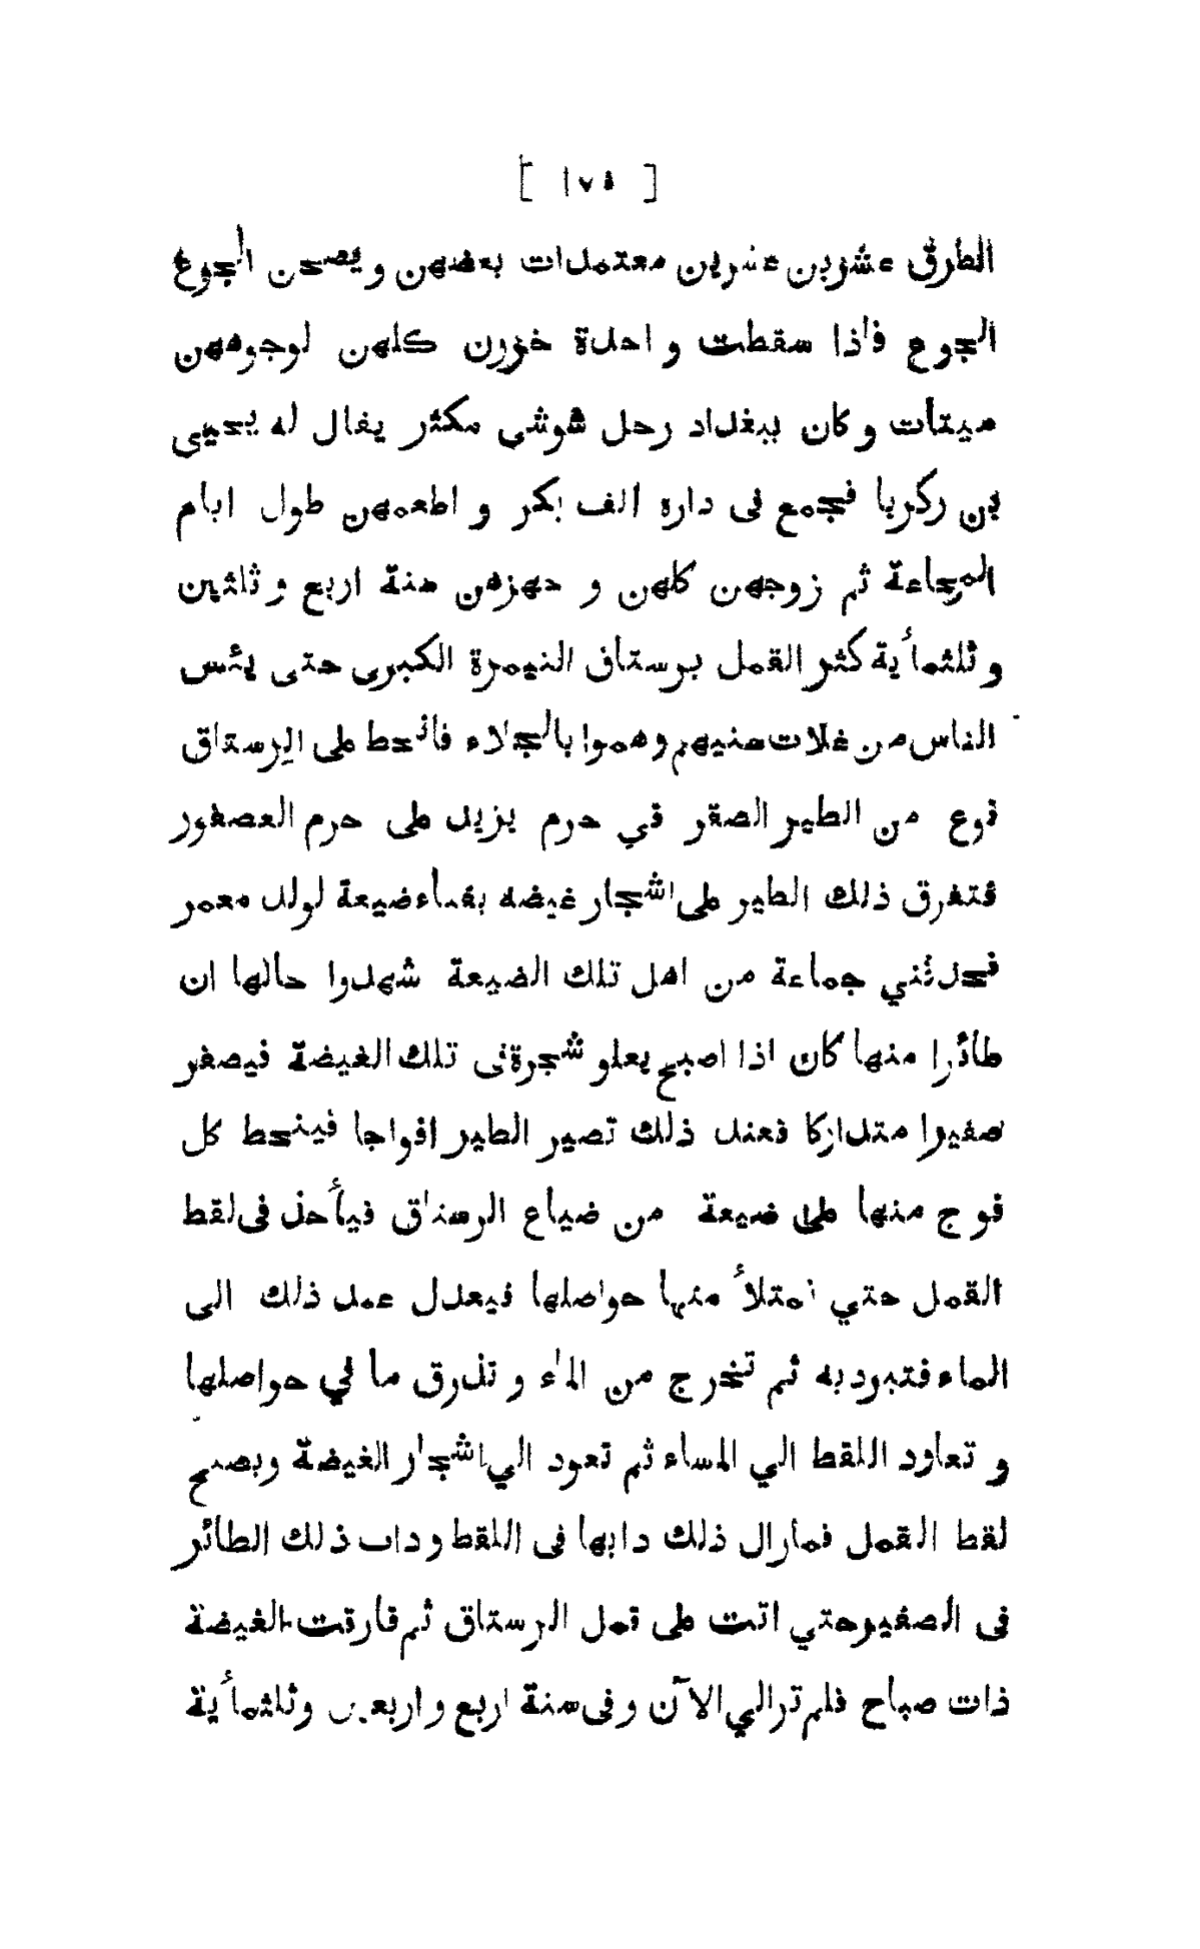 [ ١٧٥ ]
الطرق عشرين عشرين معتمدات بعضهن ويصحن الجوع
الجوع فاذا سقطت واحدة خررن كلهن لوجوههن
ميتأت وكان ببغداد رحل شوشى مكثر يفال له يحيى
بن ركريا فجمع فى داره الف بكر و اطعمهن طول ايام
المجاعة ثم زوجهن كلهن و جهزهن سنة اربع وثلثين
وثلثمأية كثر القمل برستاق النيمرة الكبرى حتى يئس
الناس من غلات سنيهم وهموا بالجلاء فانحط على الرستاق
نوع من الطير الصقر في جرم يزيد على جرم العصفور
فتفرق ذلك الطير على اشجار غيضه بفمأء ضيعة لولد معمر
فحدثني جماعة من اهل تلك الضيعة شهدوا حالها ان
طائرا منها كان اذا اصبح يعلو شجرة فى تلك الغيضة فيصفر
صفيرا متداركا فعند ذلك تصير الطير افواجا فينحط كل
فوج منها على ضيعة من ضياع الرستاق فيأحذ فى لقط
القمل حتي امتلأ منها حواصلها فيعدل عمد ذلك الى
الماء فتبرد به ثم تخرج من الماء و تذرق ما في حواصلها
و تعاود اللقط الي المساء ثم تعود الي اشجار الغيضة وبصبح
لقط القمل فمارال ذلك دابها فى اللقط وداب ذلك الطائر
فى الصفير حتي اتت على قمل الرستاق ثم فارقت الغيضة
ذات صباح فلم تر الي الآن وفى سنة اربع واربعين وثلثمأية